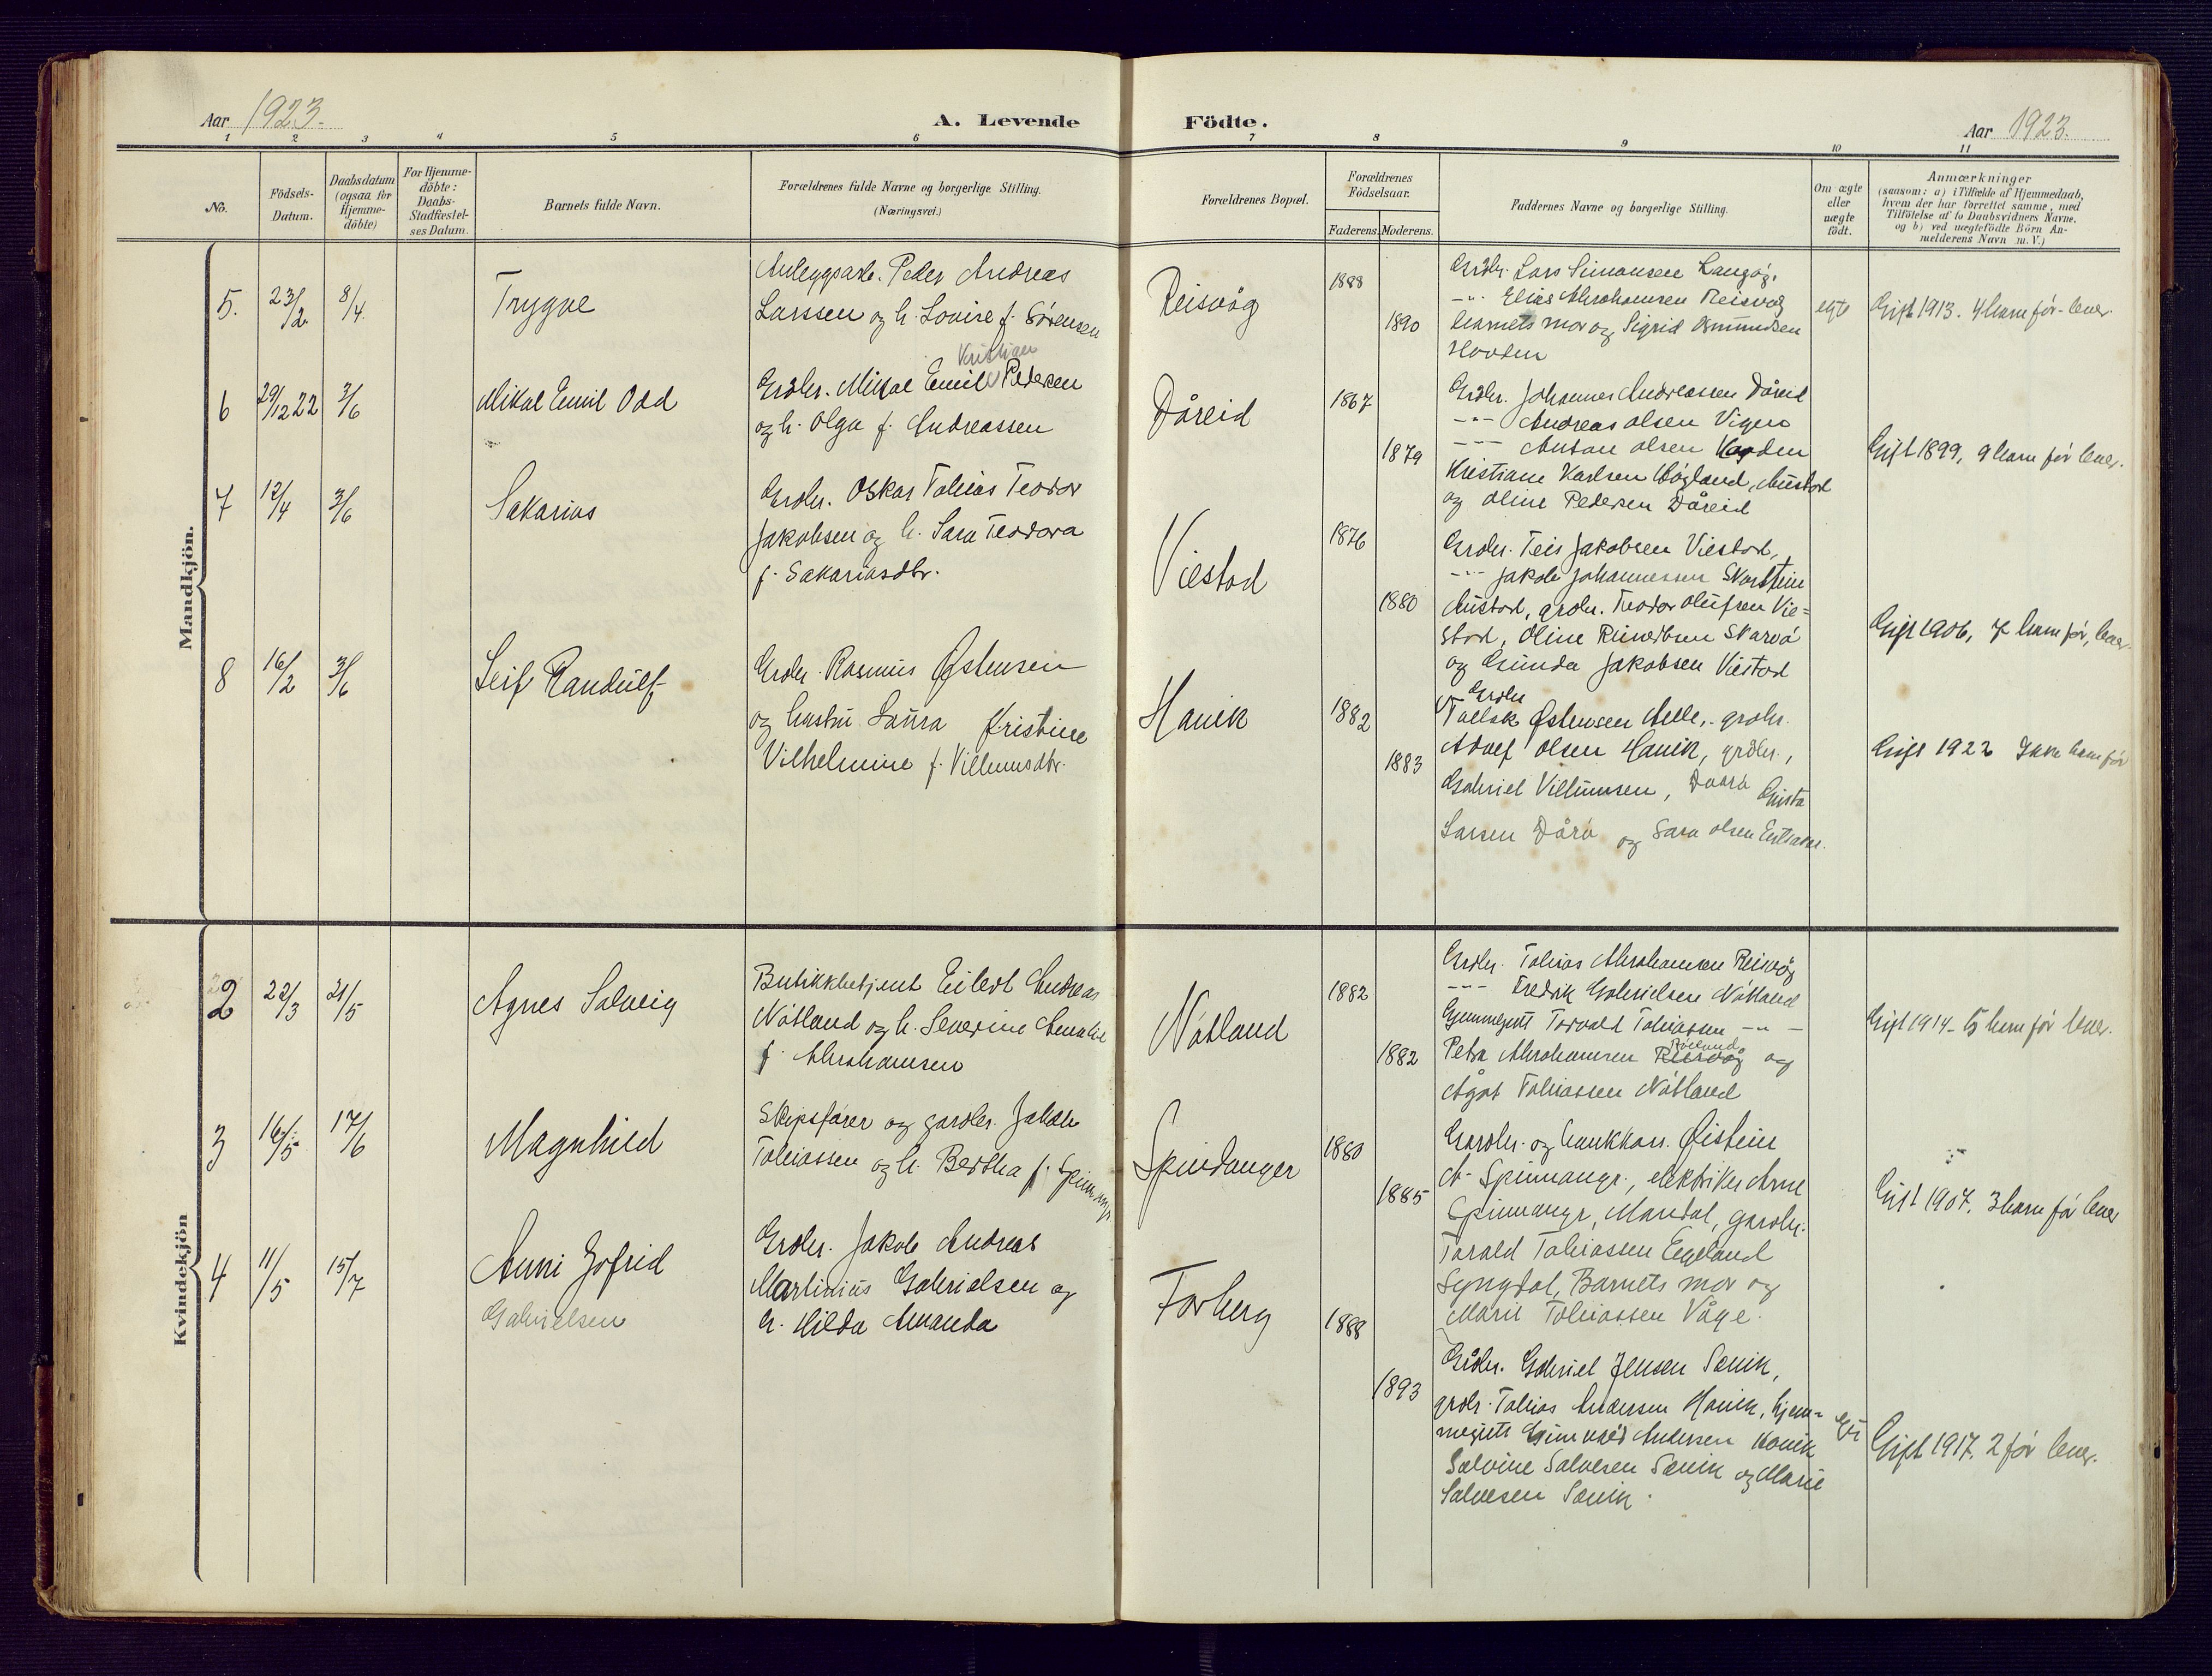 Aar 1923.
A. Levende
Födte.
Aar 1923.
1 2 3 4 5 6 7 8 9 10 11
No.
Födsels-
Datum.
Daabsdatum
(ogsaa for
Hjemme-
döbte)
For Hjemme-
döbte:
Daabs-
Stadfæstel-
ses Datum.
Barnets fulde Navn.
Forældrenes fulde Navne og borgerlige Stilling.
(Næringsvei.)
Forældrenes Bopæl.
Forældrenes
Födselsaar.
Faderens. Moderens.
Faddernes Navne og borgerlige Stilling.
Om ægte
eller
uægte
födt.
Anmærkninger
(saasom: a) i Tilfælde af Hjemmedaab,
hvem der har forrettet samme, med
Tilföielse af to Daabsvidners Navne,
og b) ved uægtefödte Börn An-
melderens Navn m. V.)
Mandkjön.
5. 23/2 8/4 Trygve
Anleggsarb. Peder Andreas
Larssen og h. Lovise f. Sörensen
Reisvåg
1888
1890
Grdbr. Lars Simonsen Langåg,
-"- Elias Abrahamsen Reisvåg
barnets mor og Sigrid Osmundsen
Hovden
egte
Gift 1913. 4 barn för lever.
6 29/12 22 3/6 Mikal Emil Odd
Kristian
Grdbr. Mikal Emil Pedersen
og h. Olga f. Andreassen
Dåreid
1867
1879
Grdbr. Johannes Andreassen Dåreid
-"- Andreas Olsen Vigen
-"- Anton Olsen
Kristiane Karlsen Högland, Austad
og Oline Pedersen Dåreid
Gift 1899, 9 barn för lever.
7 12/4 3/6 Sakarias
Grdbr. Oskar Tobias Teodor
Jakobsen og h. Sara Teodora
f. Sakariasdtr.
Viestad
1876
1880
Grdbr. Teis Jakobsen Viestad,
-"- Jakob Johannessen
Austad, grdbr. Teodor Olufsen Vie=
stad, Oline Reinertsen
og Gunda Jakobsen Viestad
Gift 1906, 7 barn för, lever.
8 16/2 3/6 Leif Randulf
Grdbr. Rasmus Östensen
og hustru Laura Kristine
Vilhelmine f. Villumsdtr.
Hanik
1882
1883
Grdbr
Tallak Östensen, grdbr.
Adolf Olsen Hanik, grdbr.,
Gabriel Villumsen, Gusta
Larsen og Sara Olsen
Gift 1922 Ikke barn för
Kvindekjön
2 22/3 21/5 Agnes Solveig
Butikkbetjent Eilert Andreas
Nötland og h. Severine Amalie
f. Abrahamsen
Nötland
1882
1882
Grdbr. Tobias Abrahamsen Reisvåg
-"- Fredrik Gabrielsen Nötland
Hjemmegutt Torvald Tobiassen -"-
Petra Abrahamsen Reisvåg og
Ågot Tobiassen Nötland
Gift 1914- 5 barn för lever.
3 16/5 17/6 Magnhild
Skipsförer og gardbr. Jakob
Tobiassen og h. Bertha f. Spinnangr
Spindanger
1880
1885
Gardbr. og bankkass. Öistein
A. Spinnangr., elektriker Arne
Spinnangr, Mandal, gardbr.
Torald Tobiassen Eigeland
Lyngdal, Barnets mor og
Marit Tobiassen Våge.
Gift 1907. 3 barn för lever
4 11/5 15/7 Anni Jofrid
Gabrielsen
Grdbr. Jakob Andreas
Martinius Gabrielsen og
h. Hilda Amanda
Forberg
1888
1893
Grdbr. Gabriel Jensen Sænik,
grdbr. Tobias Andersen Hanik, hjem=
megutt Andersen Hanik
Salvine Salvesen Sænik og Marie
Salvesen Sænik.
Gift 1917. 2 för lever.